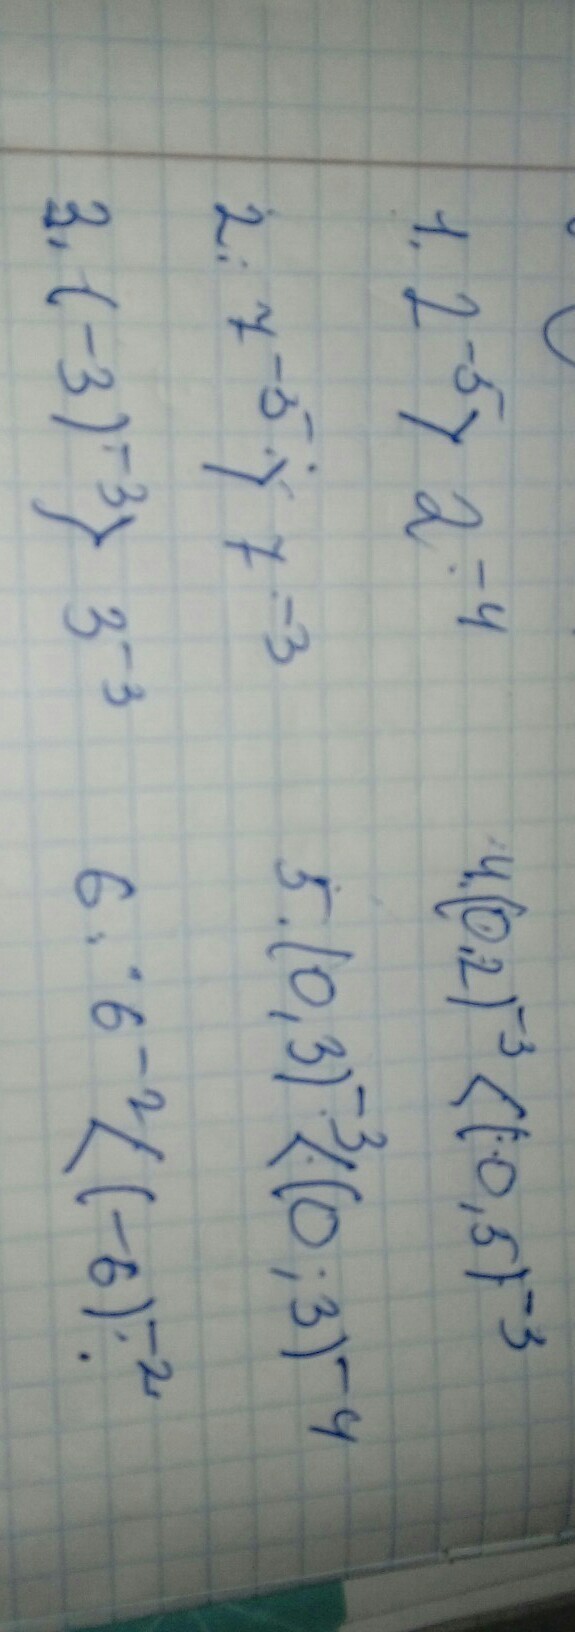 1. 2⁻⁵ > 2⁻⁴
2. 7⁻⁵ > 7⁻³
3. (-3)⁻³ > 3⁻³
4. (0,2)⁻³ < (0,5)⁻³
5. (0,3)⁻³ < (0,3)⁻⁴
6. 6⁻² < (-6)⁻²